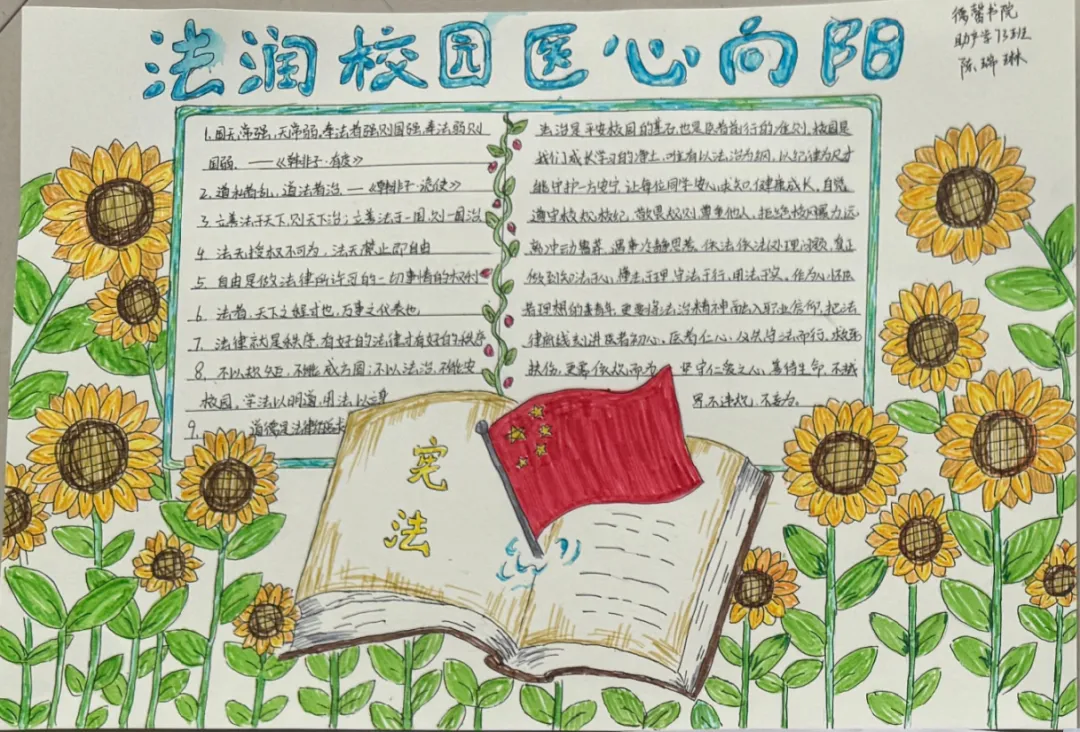 法润校园医心向阳
儒馨书院
助产学13班
陈瑞琳
1.国无常强,无常弱,奉法者强则国强,奉法弱则
国弱。——《韩非子·有度》
2.道私者乱,道法者治 —《韩非子·诡使》
3.立善法于天下,则天下治;立善法于一国,则一国治
4.法无授权不可为,法无禁止即自由
5.自由是做法律所许可的一切事情的权利
6.法者,天下之程式也,万事之仪表也
7.法律就是秩序,有好的法律才有好的秩序
8.不以规矩,不能成方圆;不以法治,不能安
校园。学法以明道,用法以
9. 道德是法律的
法治是平安校园的基石,也是医者前行的准则,校园是
我们成长学习的净土,唯有以法治为纲,以纪律为尺才
能守护一方安宁,让每位同学安心求知,健康成长,自觉
遵守校规校纪,敬畏规则尊重他人,拒绝校园暴力远
离冲动鲁莽,遇事冷静思考,依法依法处理问题,真正
做到知法于心,懂法于理,守法于行,用法于实。作为心怀医
者理想的青年,更要将法治精神融入职业信仰,把法
律底线刻进医者初心。医者仁心,必先守法而行,救死
扶伤,更需依规而为。坚守仁爱之心,善待生命,不越
界不违规,不妄为。
宪
法